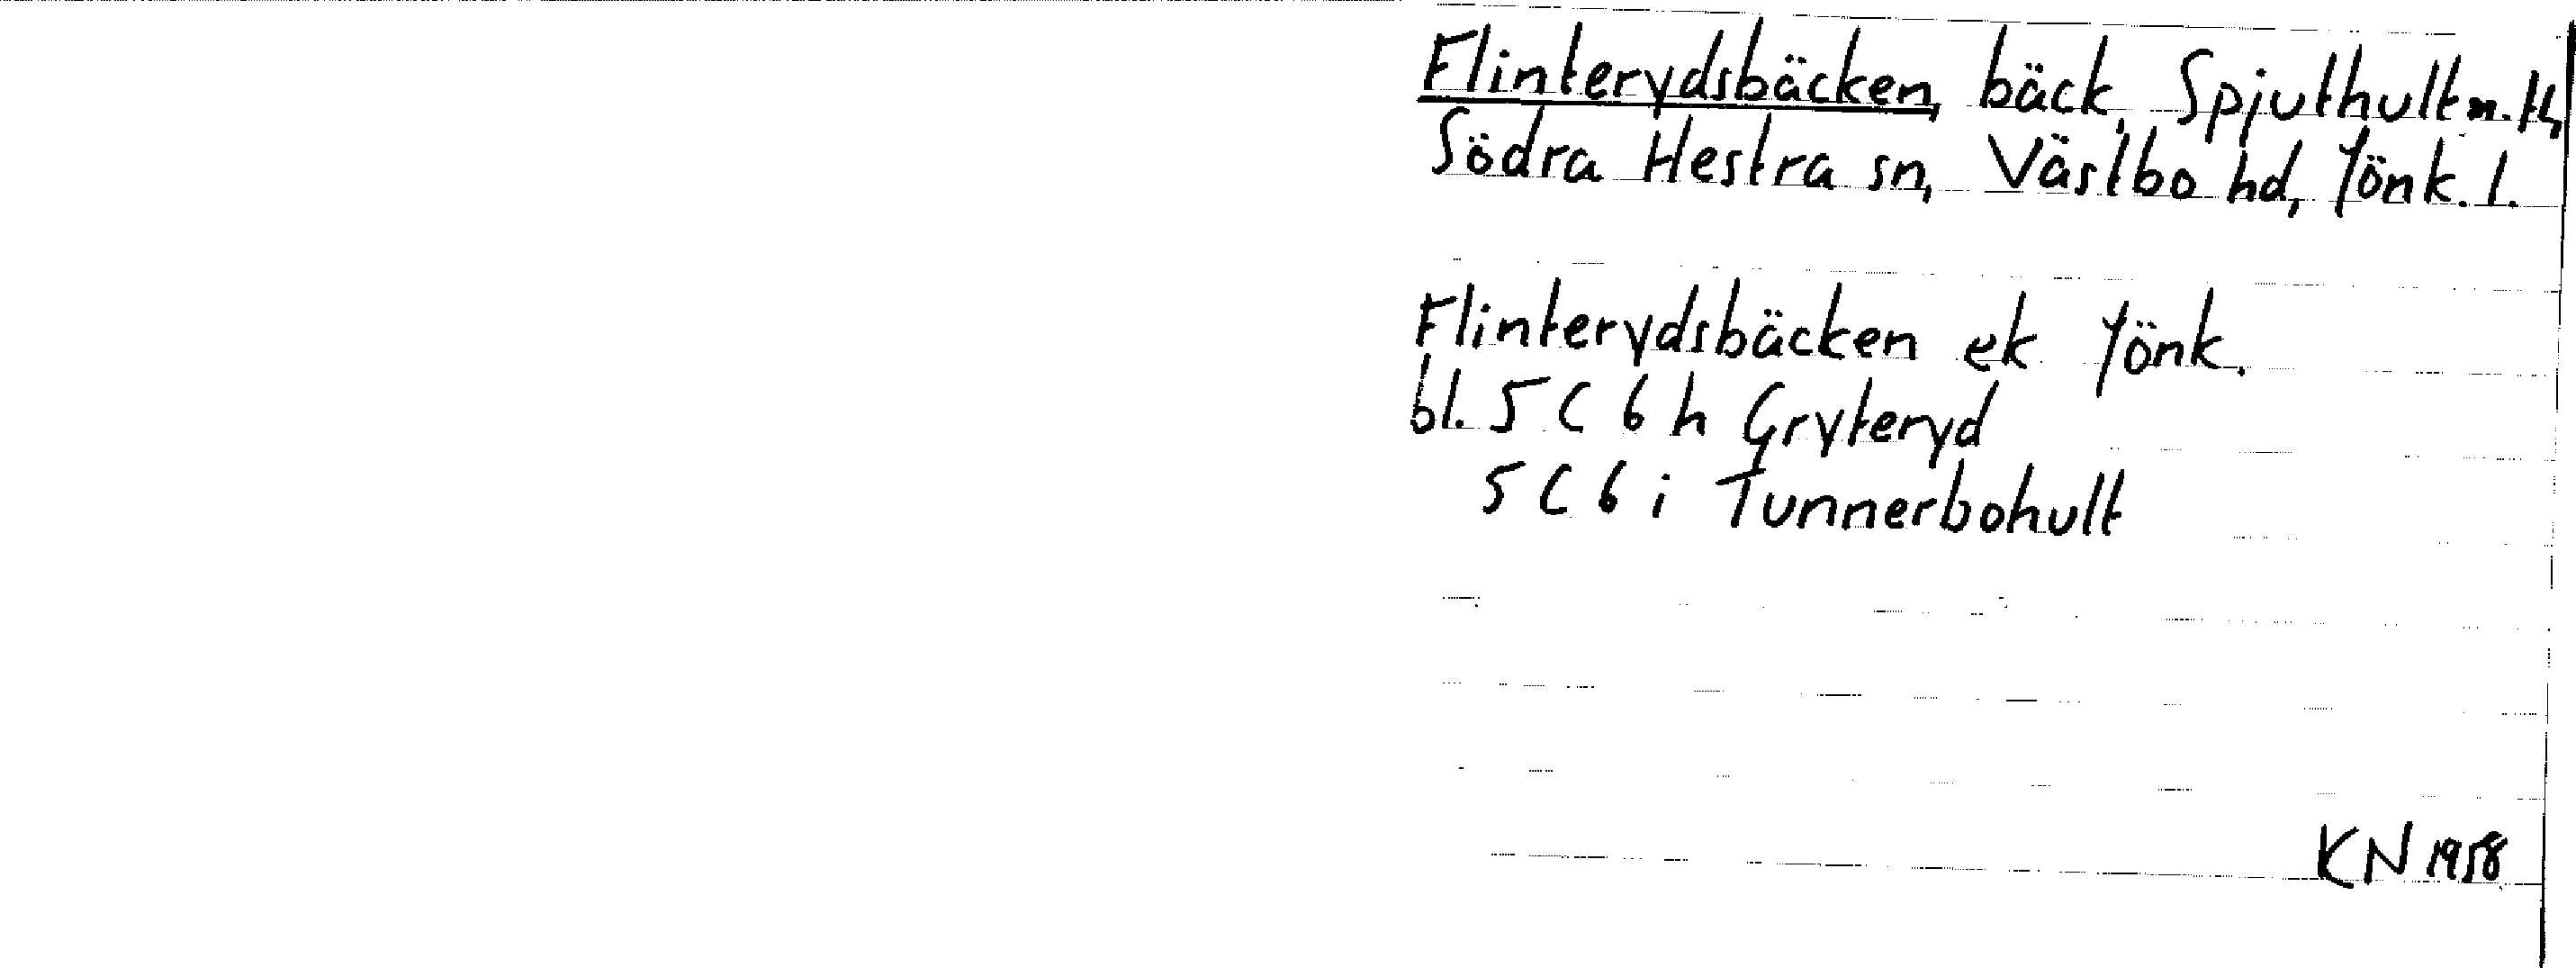 Flinterydsbäcken, bäck, Spjuthult m. fl,
Södra Hestra sn, Västbo hd, Jönk. l.
Flinterydsbäcken ek Jönk.
bl. 5 C 6 h Gryteryd
5 C 6 i Tunnerbohult
KN 1958